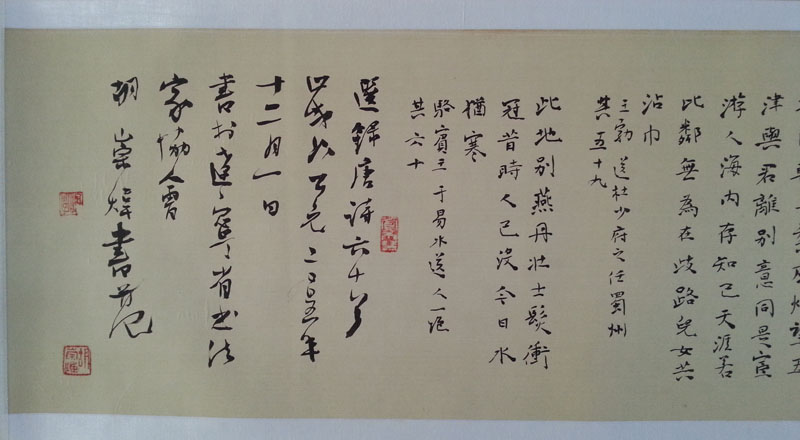 風烟望五
津與君離別意同是宦
游人海内存知己天涯若
比鄰無為在歧路兒女共
沾巾
王勃 送杜少府之任蜀州
其五十九
此地別燕丹壯士髮衝
冠昔時人已沒今日水
猶寒
駱賓王 于易水送人一絕
其六十
選錄唐詩六十首
公元二〇
十二月一日
書於遼寧省書法
家協會
胡崇煒書